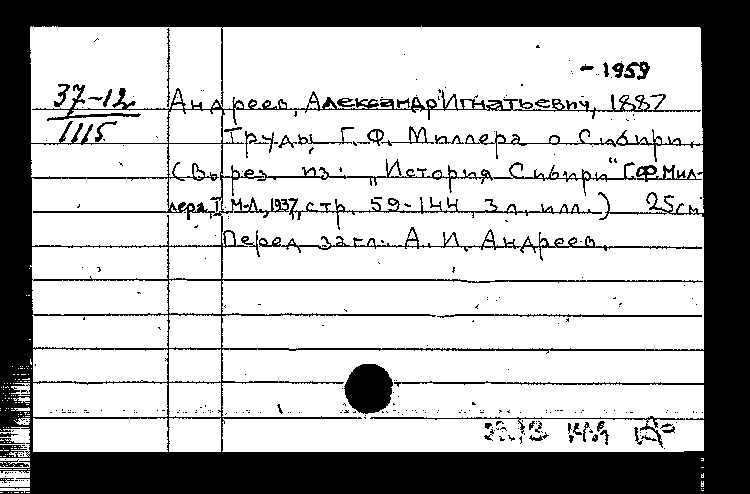 - 1959
37-12
1115
Андреев, Александр Игнатьевич, 1887
Труды Г. Ф. Миллера о Сибири.
(Вырез. из: „История Сибири" Г.Ф. Мил-
лера, I. М-Л., 1937, стр. 59-144, 3 л. илл.) 25см
Перед загл.: А. И. Андреев.